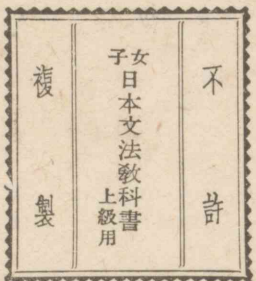 不許
女子日本文法教科書上級用
複製